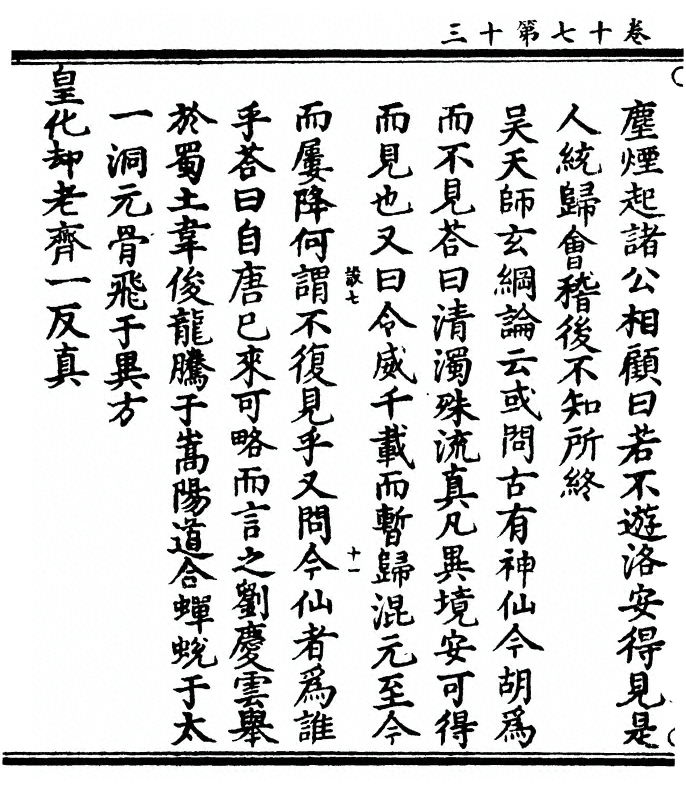 卷十七第十三
塵煙起諸公相顧曰若不遊洛安得見是
人統歸會稽後不知所終
吴天師玄綱論云或問古有神仙今胡爲
而不見荅曰清濁殊流真凡異境安可得
而見也又曰令威千載而暫歸混元至今
設七
十一
而屢降何謂不復見乎又問今仙者爲誰
乎荅曰自唐巳來可略而言之劉慶雲舉
於蜀土韋俊龍騰于嵩陽道合蟬蛻于太
一洞元骨飛于異方
皇化却老齊一反真